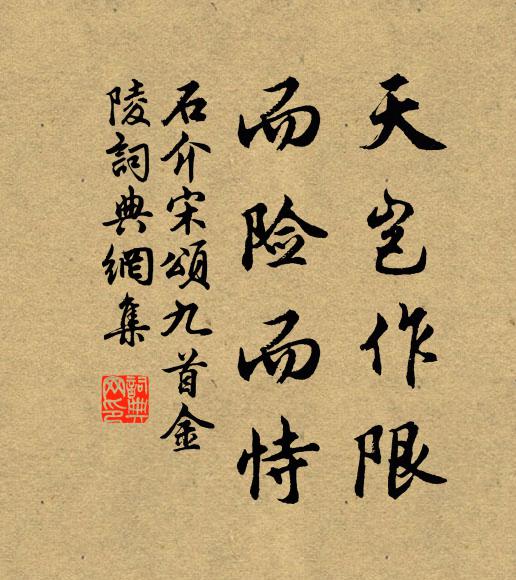 天岂作限
而险而恃
石介宋頌九首金
陵詞典網集
詞典
网印